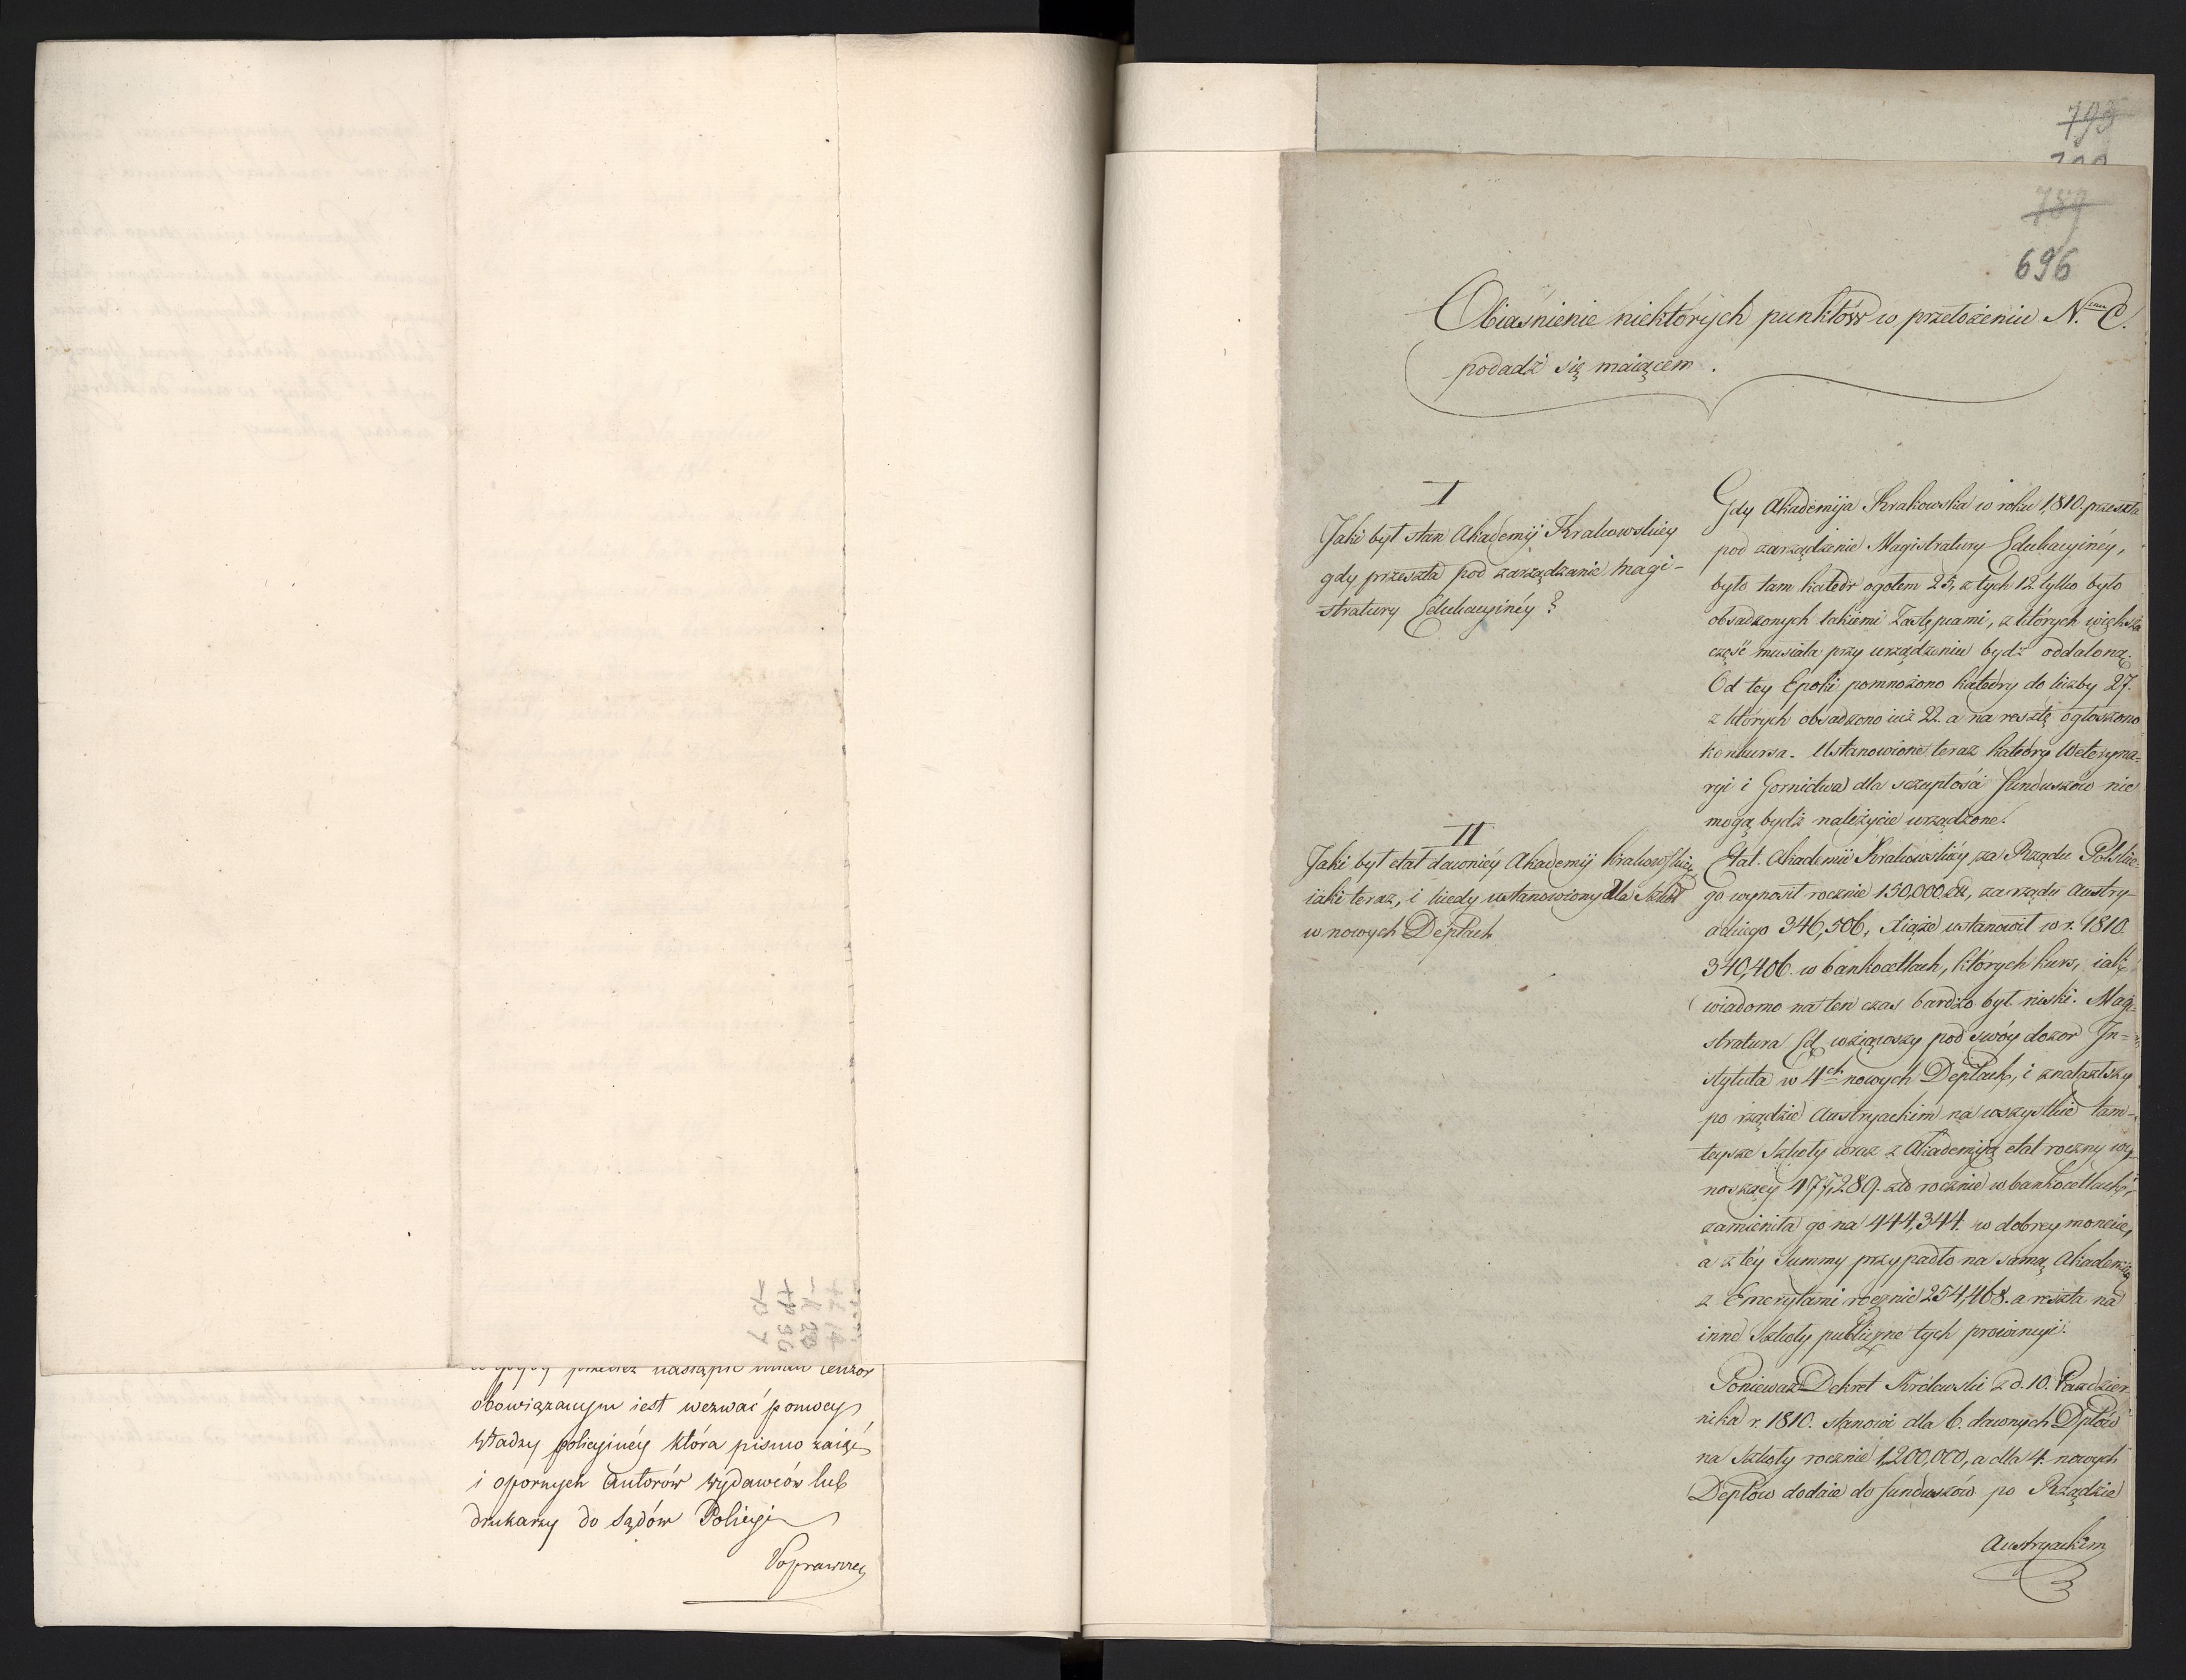 obowiązanym iest wezwać pomocy
Władzy policyinéy która pismo zaiąć
i opornych Autorów wydawców lub
drukarzy do Sądów Policyi
Poprawczey
793
789
696
Obiaśnienie niektórych punktów w przełożeniu N. C.
podadź się maiącem.
I
Jaki był stan Akademij Krakowskiey
gdy przeszła pod zarządzanie Magi-
stratury Edukacyinéy?
II
Jaki był etat dawniéy Akademij Krakowskiey
iaki teraz, i kiedy ustanowiony dla Szkół
w nowych Deptach
Gdy Akademija Krakowska w roku 1810. przeszła
pod zarządzenie Magistratury Edukacyinéy,
było tam katedr ogołem 25, z tych 12 tylko było
obsadzonych takiemi Zastępcami, z których większa
część musiała przy urządzeniu bydź oddaloną.
Od tey Epoki pomnożono katedry do liczby 27.
z których obsadzono iuż 22. a na resztę ogłoszono
konkursa. Ustanowione teraz katedry Weteryna-
ryi i Gornictwa dla sczupłości funduszów nie
mogą bydź należycie urządzone.
Etat Akademii Krakowskiéy za Rządu Polskie-
go wynosił rocznie 150,000 Zł, za rządu Austry-
ackiego 346,506, Xiąże ustanowił w r. 1810.
340,406. w bankocetlach, których kurs, iak
wiadomo na ten czas bardzo był niski. Magi-
stratura Ed. wziąwszy pod swóy dozor In-
stytuta w 4ch nowych Deptach, i znalazłszy
po rządzie Austryackim na wszystkie tam-
teysze Szkoły wraz z Akademiją etat roczny wy-
noszący 477,289. zło rocznie w bankocetlach,
zamieniła go na 444,344. w dobrey monecie,
a z téy Summy przypadło na samą Akademiią
z Emerytami rocznie 254,468. a reszta na
inne Szkoły publiczne tych prowincyi.
Ponieważ Dekret Królewski z d. 10. Pazdzier
nika r. 1810. stanowi dla 6. dawnych Dptów
na Szkoły rocznie 1,200,000, a dla 4. nowych
Deptow dodaie do funduszów po Rządzie
Austryackim